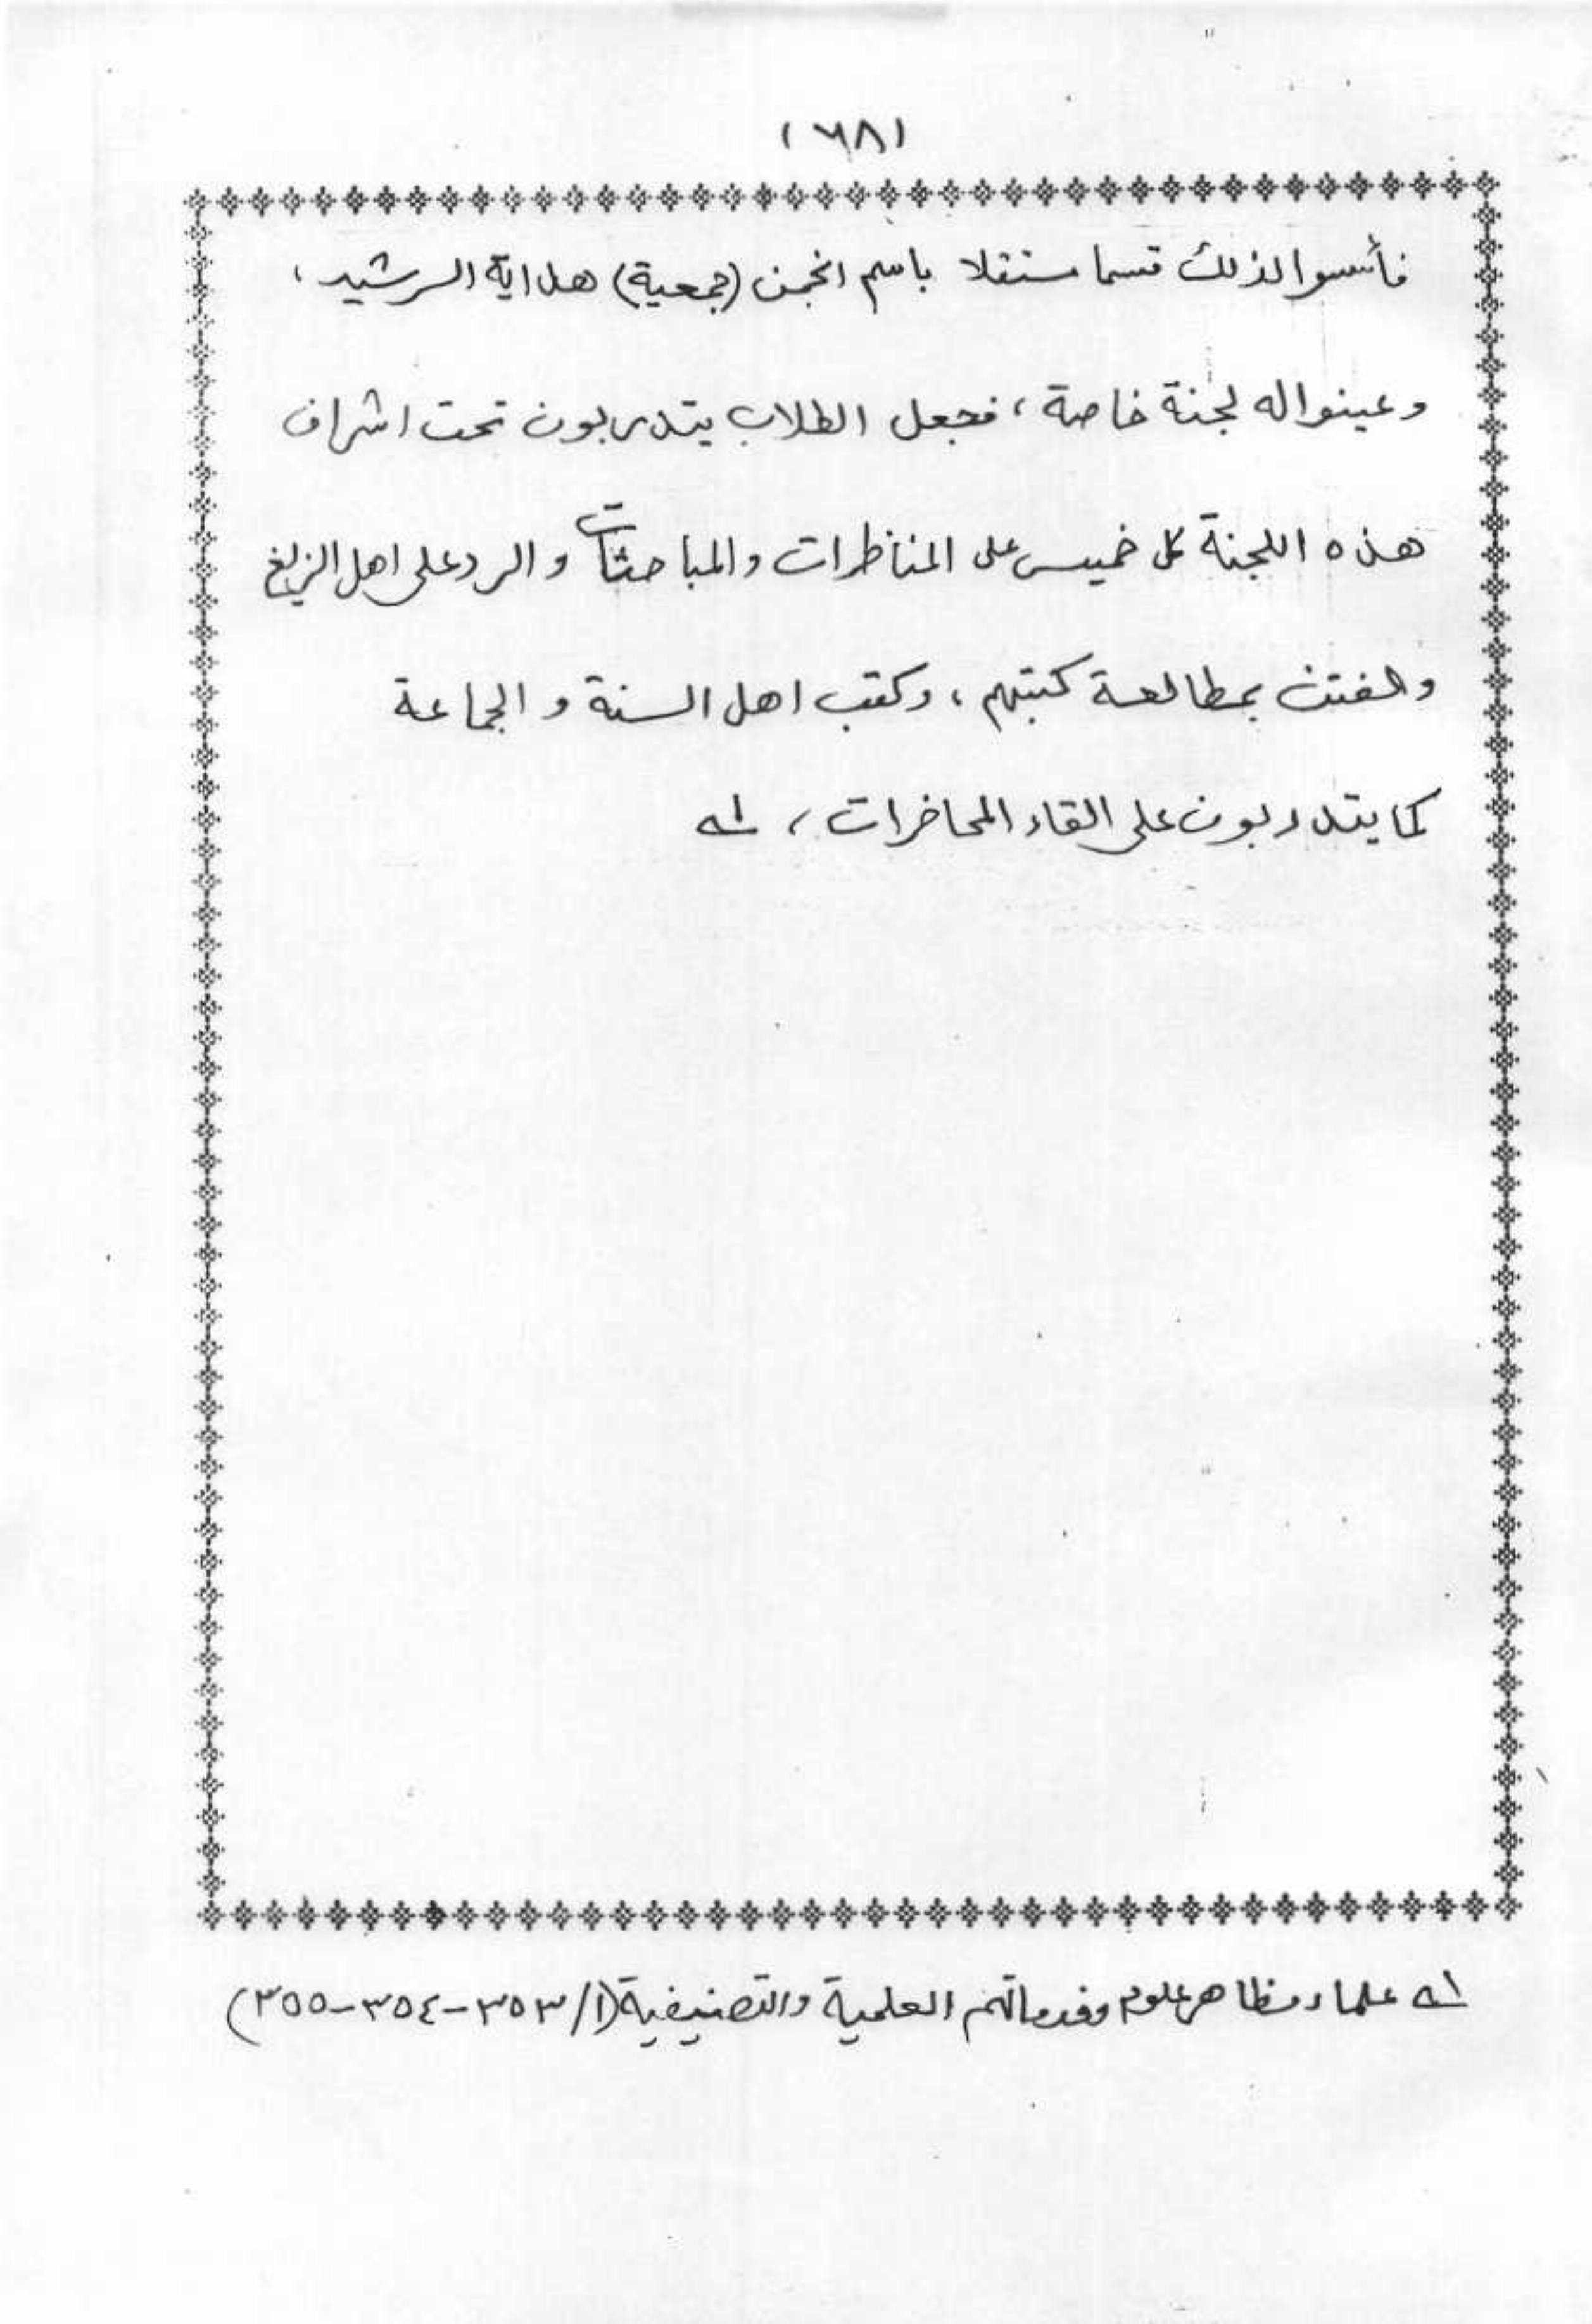 (٦٨)
فأسسوا لذلك قسما مستقلا باسم انجمن (جمعية) هداية الرشيد،
وعينوا له لجنة خاصة، فجعل الطلاب يتدربون تحت اشراف
هذه اللجنة كل خميس على المناظرات والمباحثات والرد على اهل الزيغ
والفتن بمطالعة كتبهم، وكتب اهل السنة و الجماعة
كما يتدربون على القاء المحاضرات، ١ه
١ه علماء مظاهر علوم وخدماتهم العلمية والتصنيفية (١/٣٥٣-٣٥٤-٣٥٥)